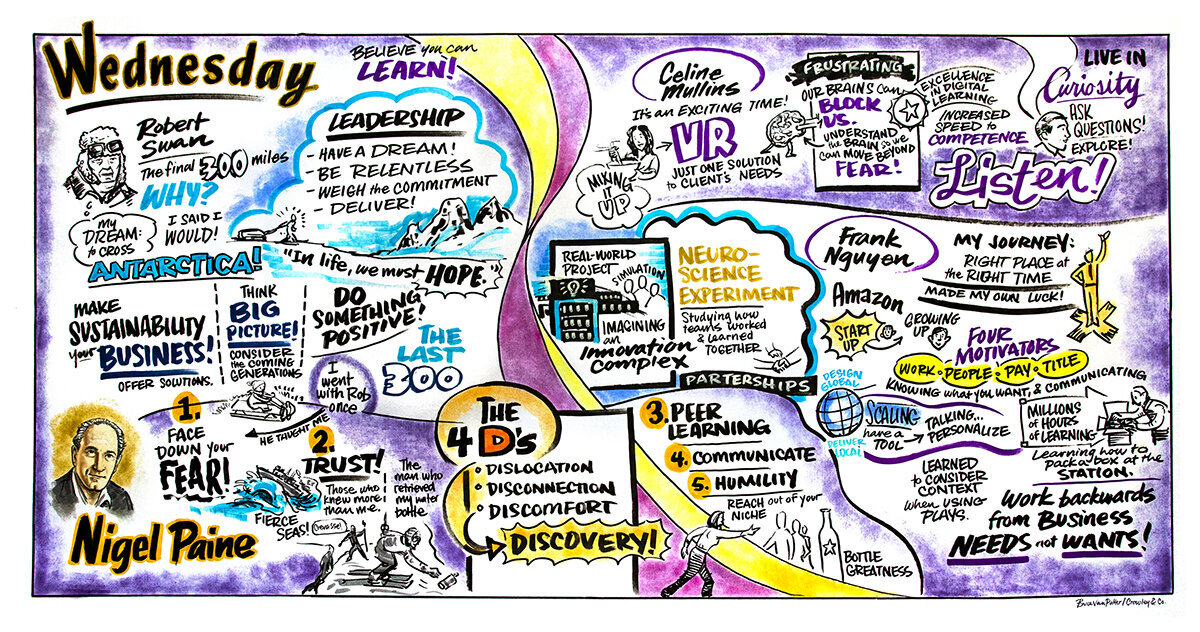 Wednesday
BELIEVE you can
LEARN!
Robert
Swan
The final 300 miles
WHY?
my
DREAM:
to CROSS
I SAID I
WOULD!
ANTARCTICA!
LEADERSHIP
- HAVE A DREAM!
- BE RELENTLESS
- WEIGH the COMMITMENT
- DELIVER!
"In life, we must HOPE."
MAKE
SUSTAINABILITY
your BUSINESS!
OFFER SOLUTIONS.
THINK
BIG
PICTURE!
CONSIDER
the COMING
GENERATIONS
DO
SOMETHING
POSITIVE!
THE
LAST
300
I
went
with Rob
once
HE TAUGHT ME
Nigel Paine
1.
FACE
DOWN your
FEAR!
2.
TRUST!
Those who
knew more
than me.
FIERCE
SEAS!
Crevasse!
The
man who
retrieved
my water
bottle
THE
4 D's
DISLOCATION
DISCONNECTION
DISCOMFORT
DISCOVERY!
3. PEER
LEARNING
4. COMMUNICATE
5. HUMILITY
REACH out of your
NICHE
BOTTLE
GREATNESS
Celine
Mullins
IT'S an EXCITING TIME!
VR
JUST ONE SOLUTION
to CLIENT'S NEEDS
MIXING
IT
UP
FRUSTRATING
OUR BRAINS can
BLOCK
US.
UNDERSTAND
the BRAIN so we
can MOVE BEYOND
FEAR!
EXCELLENCE
IN DIGITAL
LEARNING
INCREASED
SPEED to
COMPETENCE
LIVE IN
Curiosity
ASK
QUESTIONS!
EXPLORE!
Listen!
REAL-WORLD
PROJECT
SIMULATION
IMAGINING
an
Innovation
complex
NEURO-
SCIENCE
EXPERIMENT
Studying how
teams worked
& learned
TOGETHER
PARTERSHIPS
Frank
Nguyen
MY JOURNEY:
RIGHT PLACE at
the RIGHT TIME
MADE MY OWN LUCK!
Amazon
START
UP
GROWING
UP
FOUR
MOTIVATORS
WORK • PEOPLE • PAY • TITLE
KNOWING what you WANT, & COMMUNICATING
DESIGN
GLOBAL
DELIVER
LOCAL
SCALING
have a
TOOL
TALKING...
PERSONALIZE
MILLIONS
of HOURS
of LEARNING
Learning how to
pack a box at the
STATION.
LEARNED
to CONSIDER
CONTEXT
when USING
PLAYS.
Work backwards
from Business
NEEDS not WANTS!